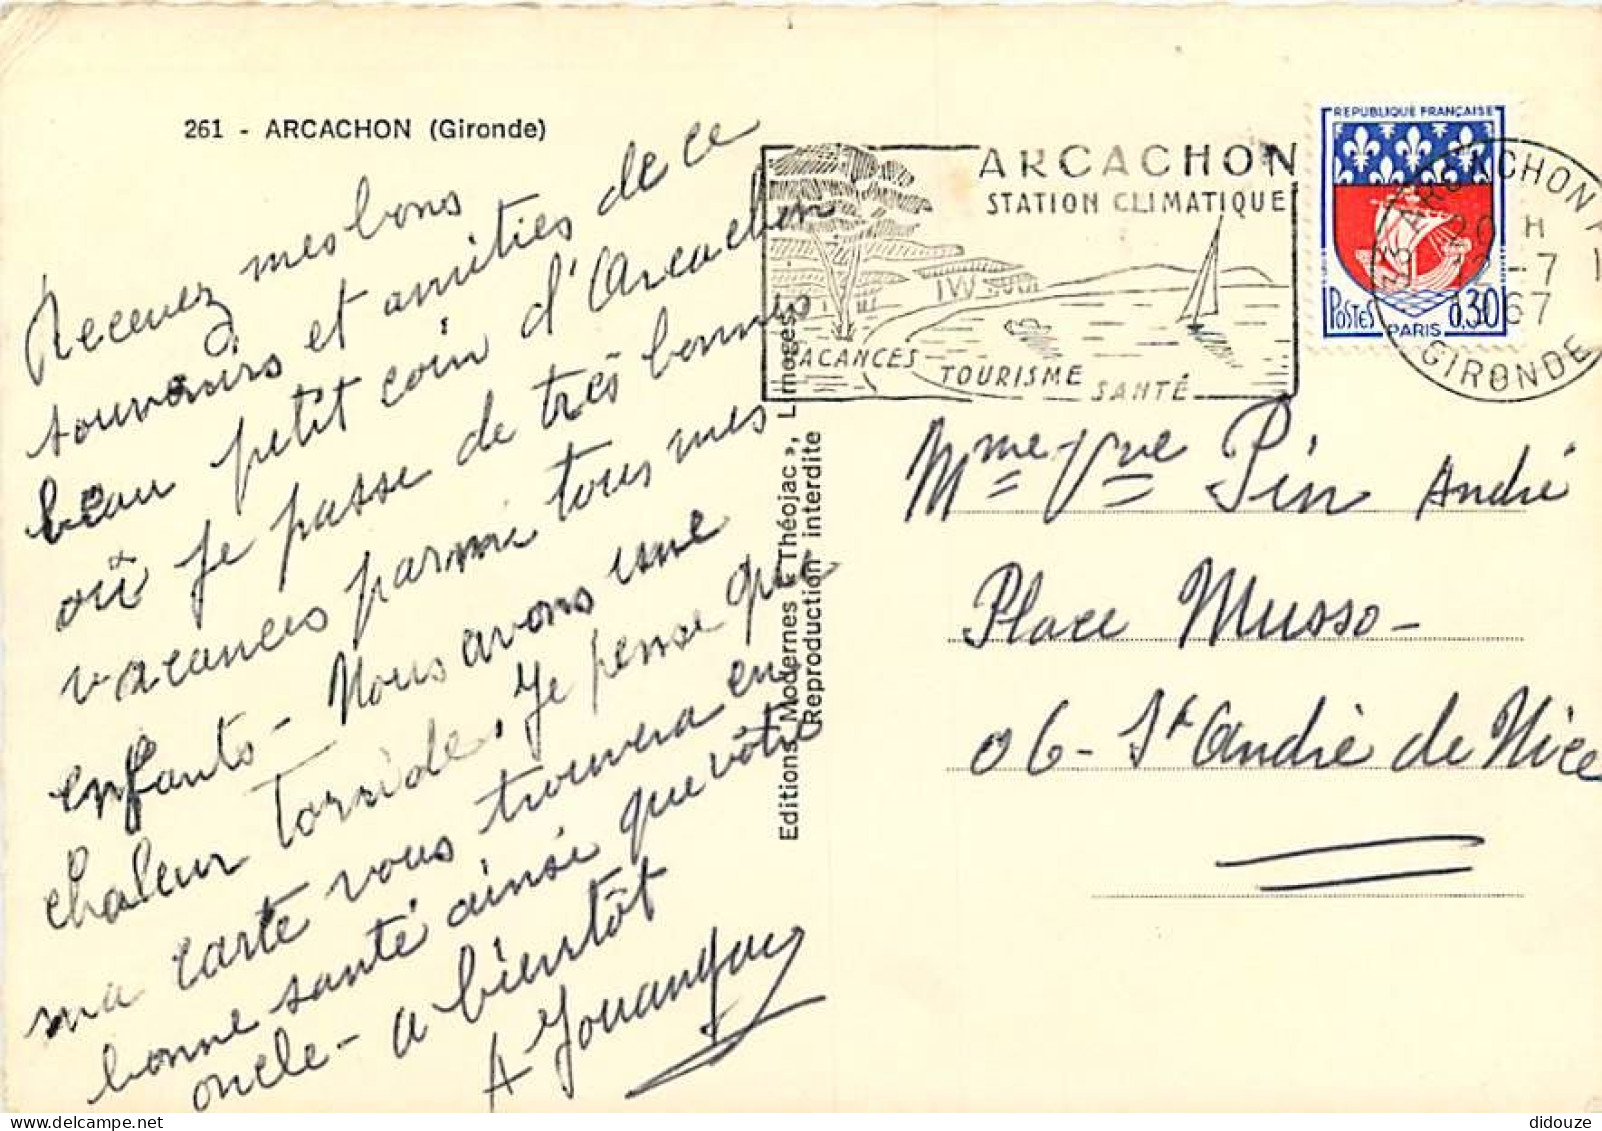 261 - ARCACHON (Gironde)
Recevez mes bons
souvenirs et amitiés de ce
beau petit coin d'Arcachon
où je passe de très bonnes
vacances parmi tous mes
enfants - Nous avons une
chaleur torride, je pense que
ma carte vous trouvera en
bonne santé ainsi que votre
oncle - a bientôt
A
Editions Modernes « Théojac », Limoges
Reproduction interdite
ARCACHON
STATION CLIMATIQUE
VACANCES
TOURISME
SANTÉ
REPUBLIQUE FRANÇAISE
POSTES
0,30
PARIS
33 ARCACHON
20 H
-7
1967
GIRONDE
Mme Vve Pin André
Place Musso -
06 - St André de Nice
didouze